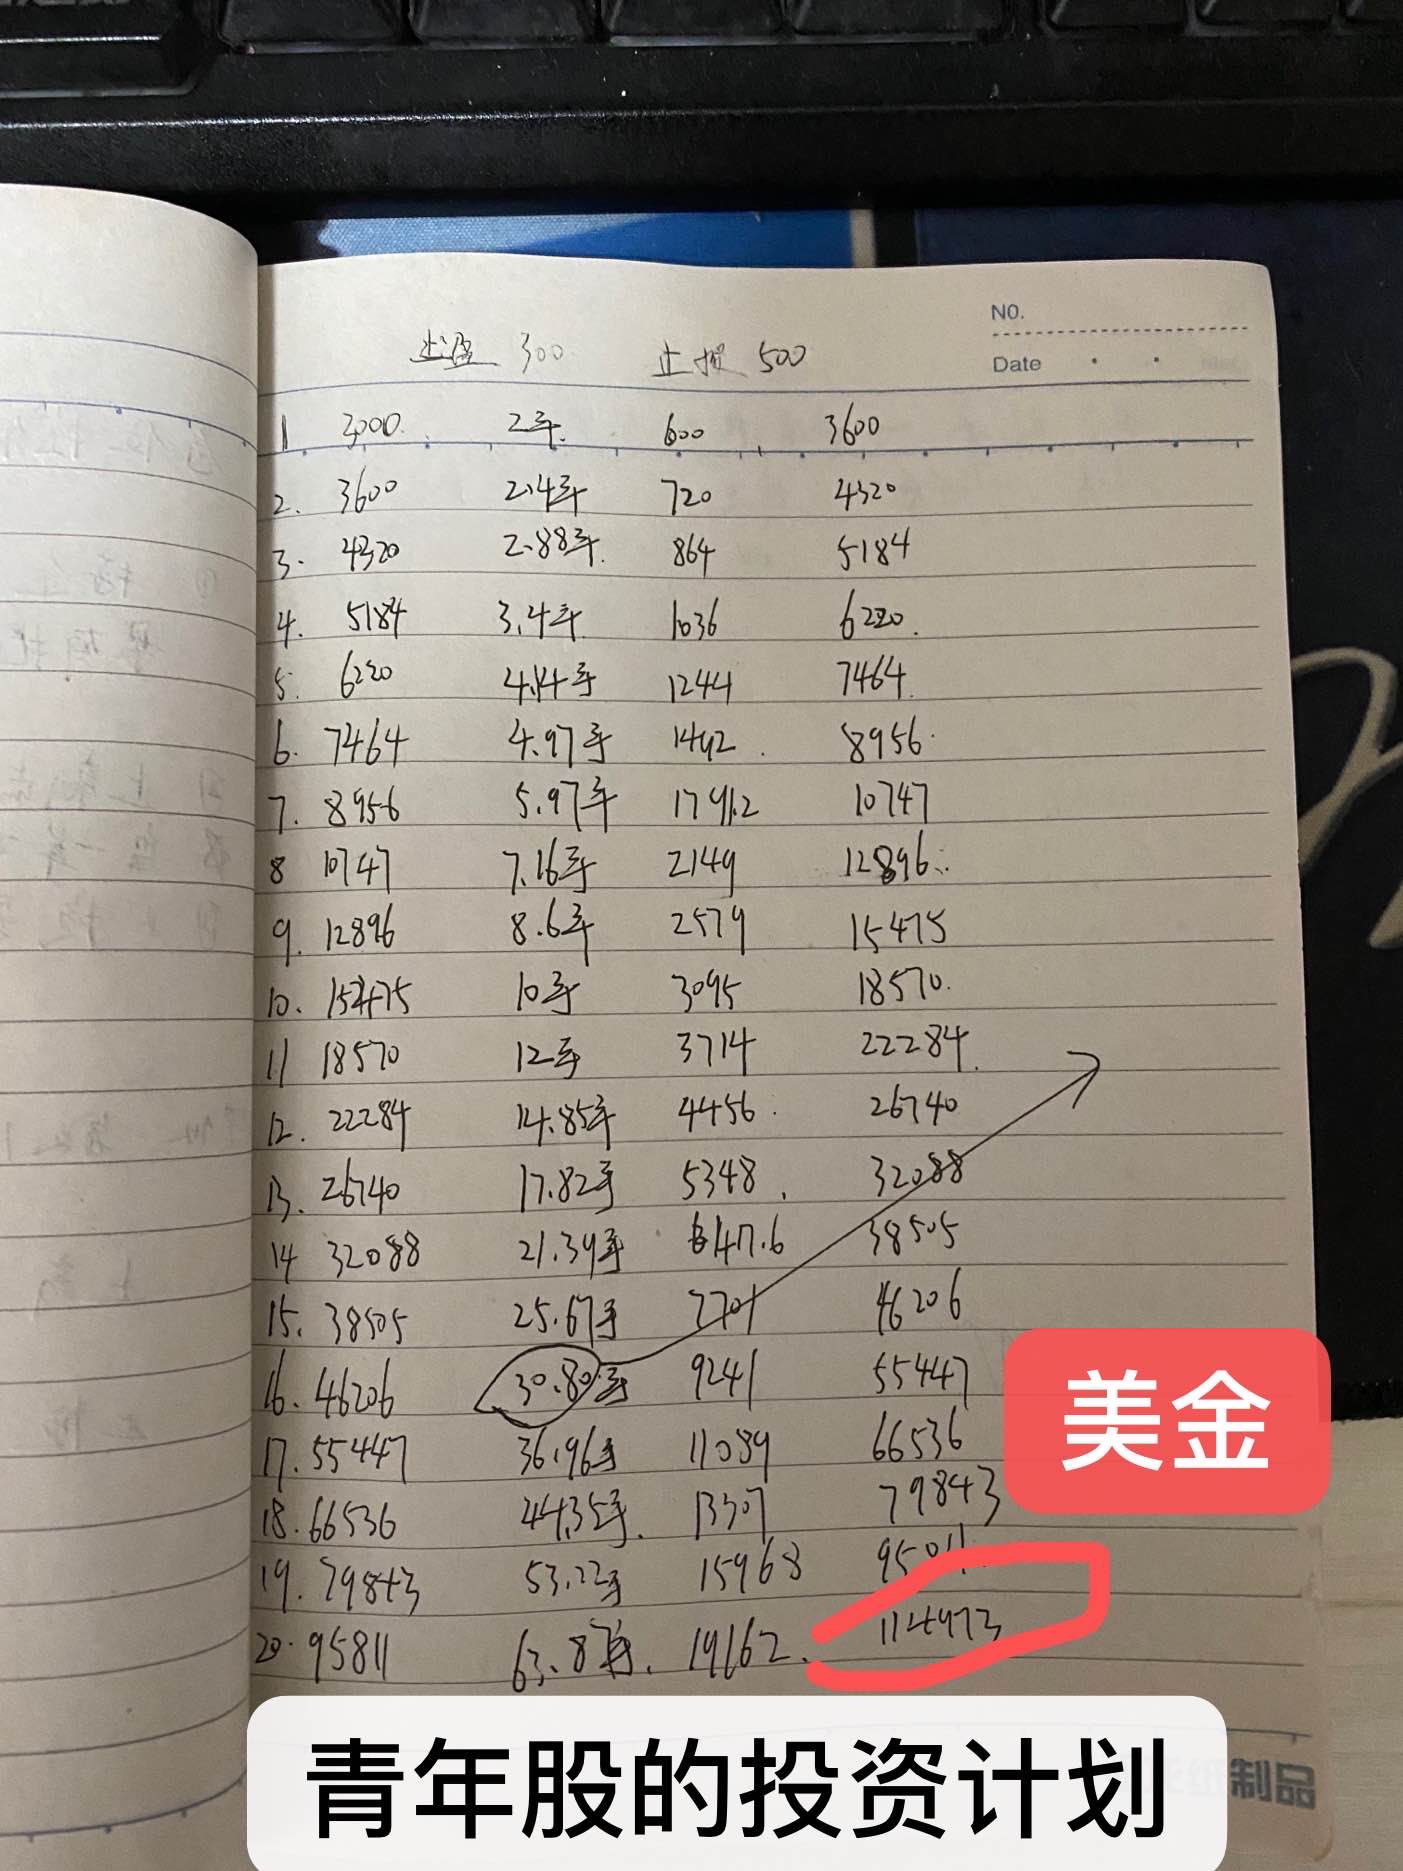 NO.
止盈 300 止损 500
Date
1 3000. 2手. 600 3600
2. 3600 2.4手 720 4320
3. 4320 2.88手. 864 5184
4. 5184 3.4手 1036 6220.
5. 6220 4.14手 1244 7464
6. 7464 4.97手 1492. 8956.
7. 8956 5.97手 1791.2 10747
8 10747 7.16手 2149 12896.
9. 12896 8.6手 2579 15475
10. 15475 10手 3095 18570.
11 18570 12手 3714 22284.
12. 22284 14.85手 4456. 26740
13. 26740 17.82手 5348. 32088
14 32088 21.39手 6417.6 38505
15. 38505 25.67手 7701 46206
16. 46206 30.80手 9241 55447
17. 55447 36.96手 11089 66536
18. 66536 44.35手. 13307 79843
19. 79843 53.22手 15968 95811
20. 95811 63.87手. 19162. 114973
美金
青年股的投资计划
制品